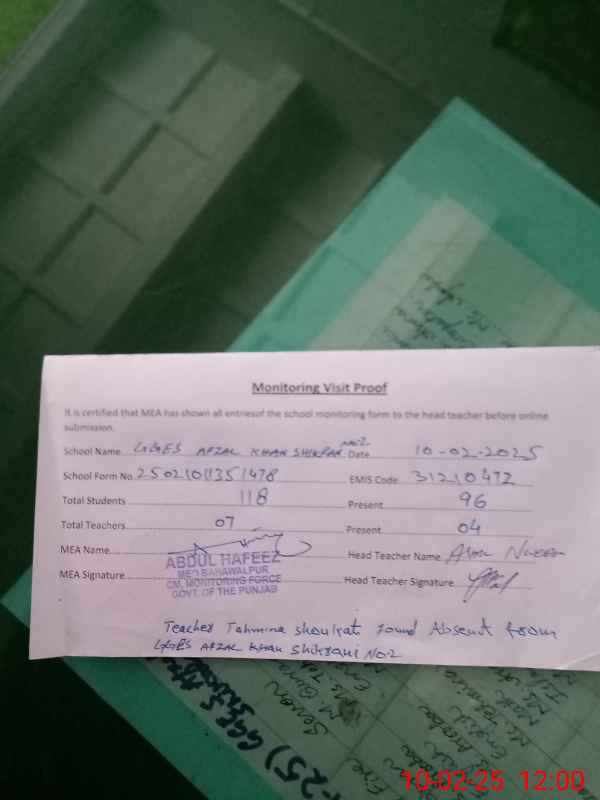 Monitoring Visit Proof
It is certified that MEA has shown all entriesof the school monitoring form to the head teacher before online
submission.
School Name GGES AFZAL KHAN SHIKRANI NO.2 Date 10-02-2025
School Form No 25021011351478 EMIS Code 31210472
Total Students 118 Present 96
Total Teachers 07 Present 04
MEA Name Head Teacher Name
ABDUL HAFEEZ
MEO BAHAWALPUR
MEA Signature Head Teacher Signature
CM, MONITORING FORCE
GOVT. OF THE PUNJAB
Teacher Tahmina shoukat found Absent from
GGES AFZAL KHAN Shikrani NO.2
10-02-25 12:00